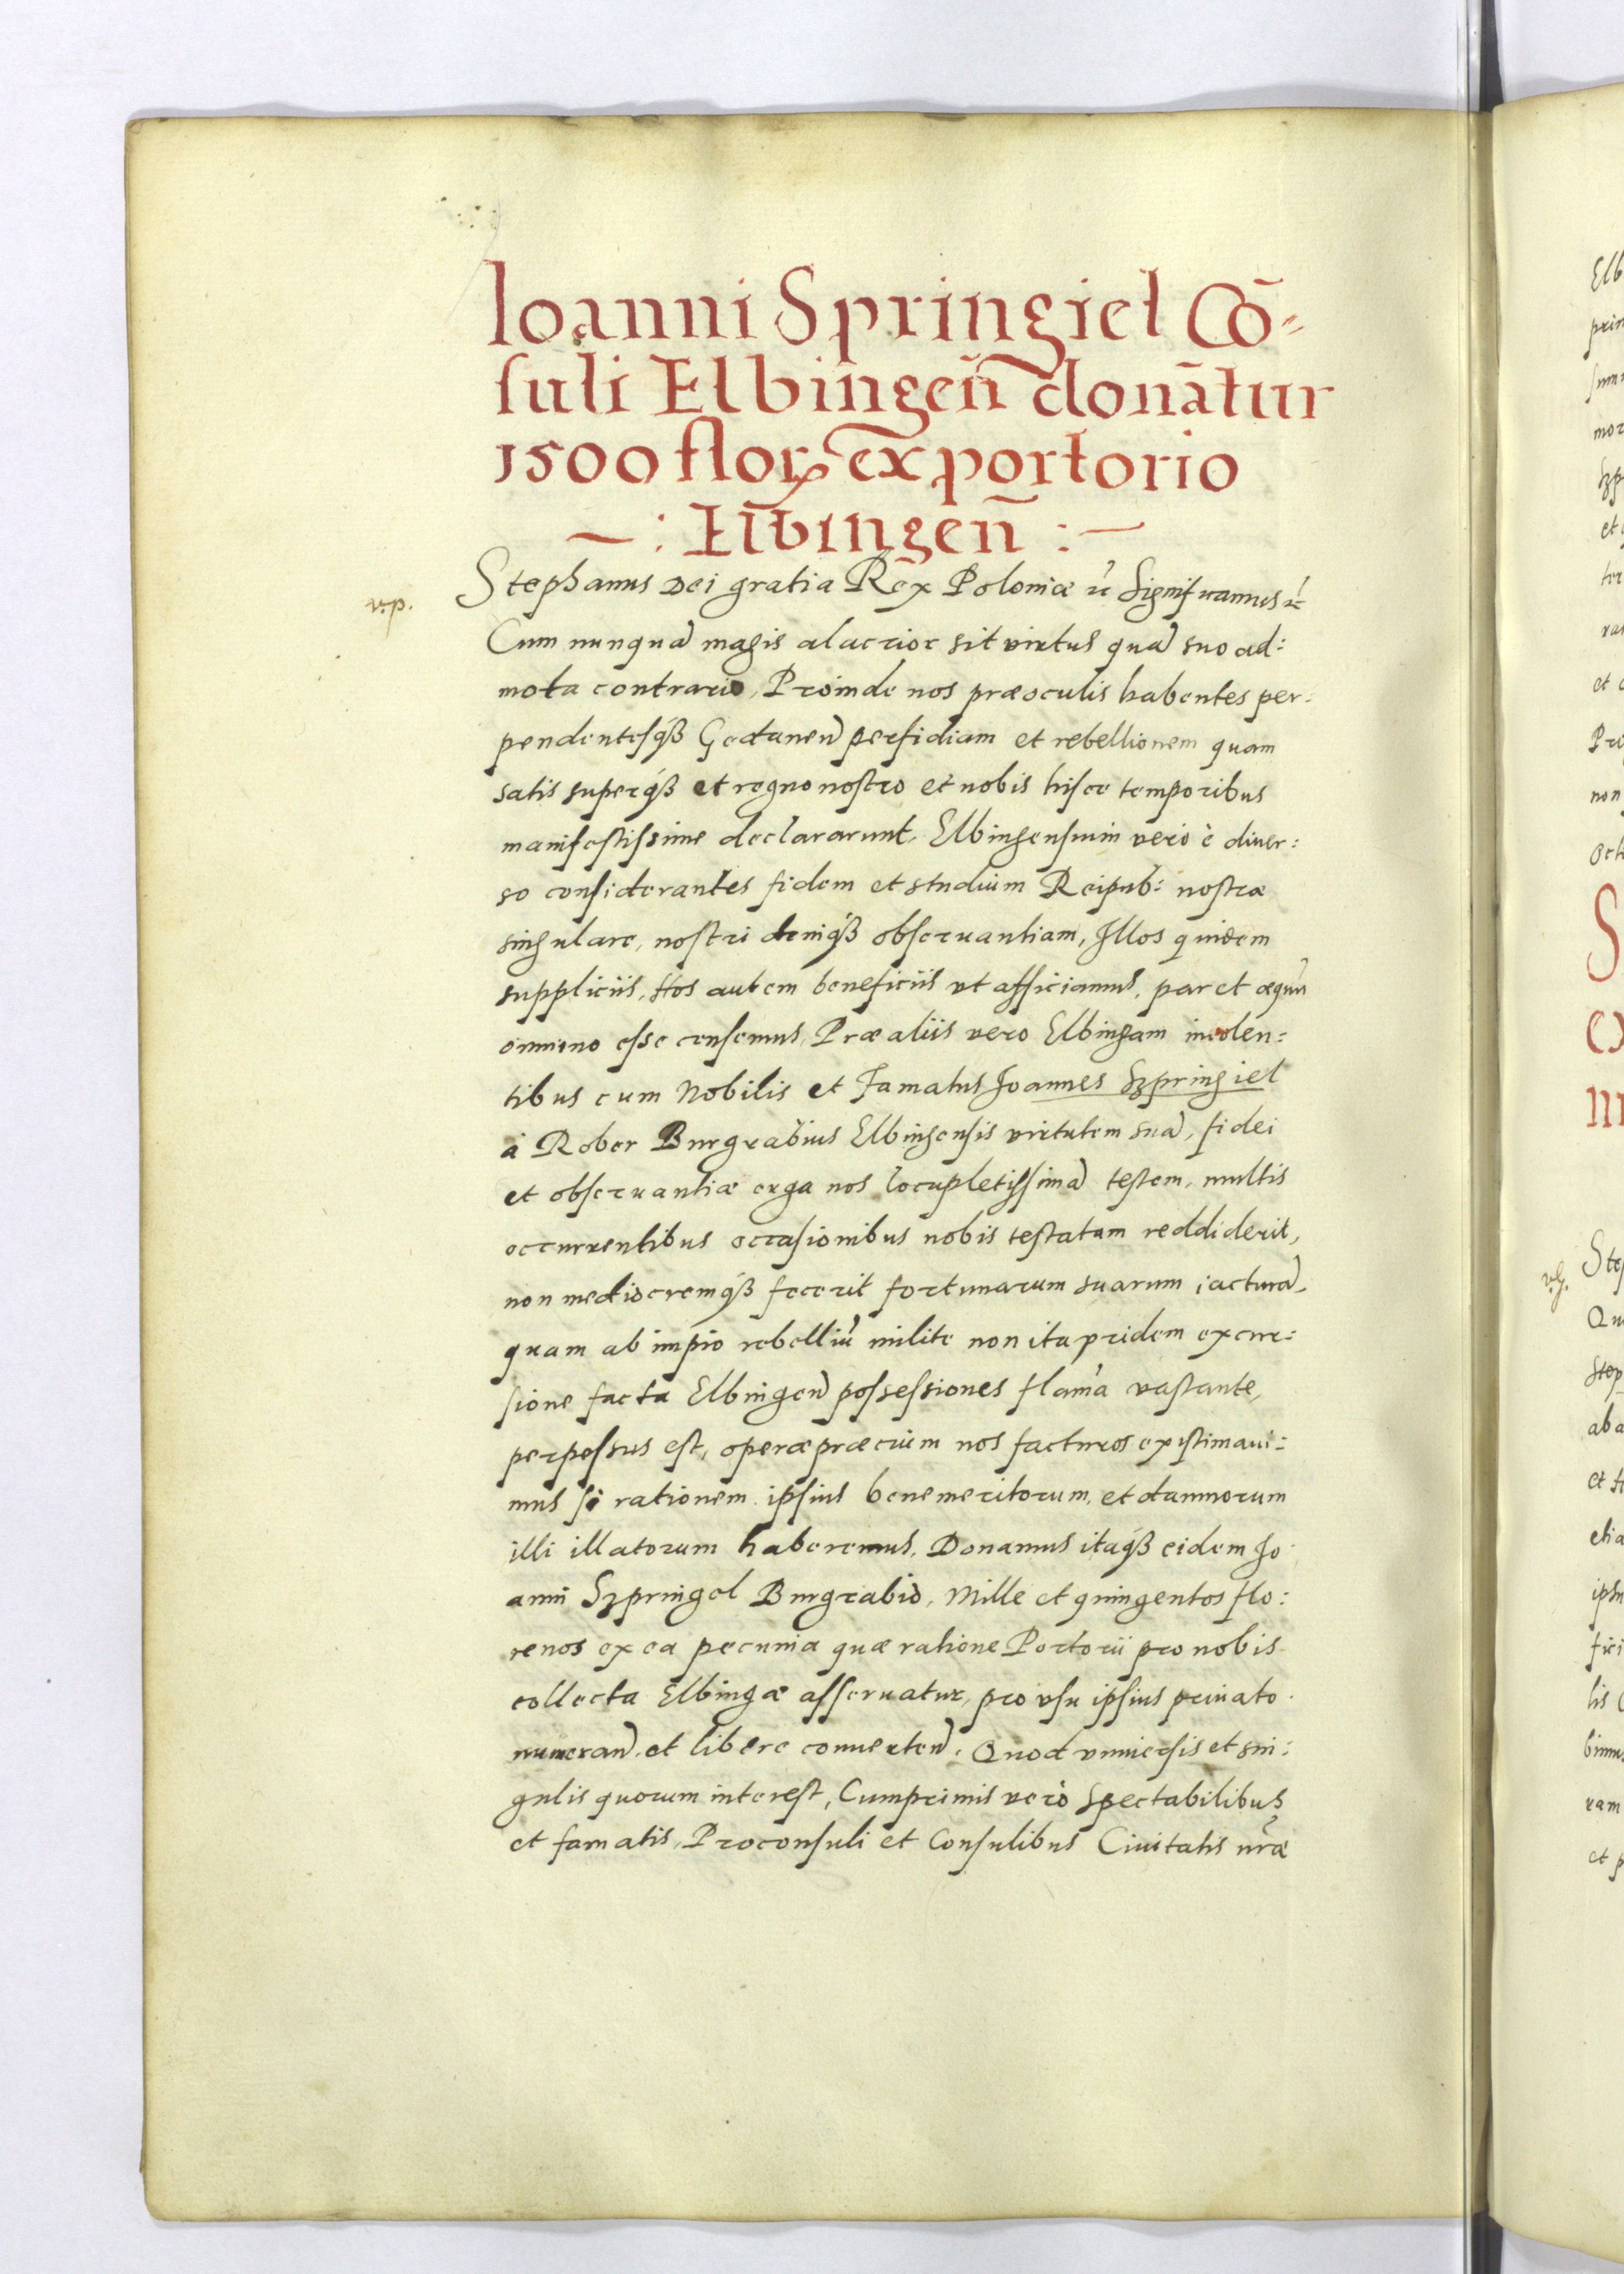 Ioanni Springiel Cō-
suli Elbingen̄ donātur
1500 florꝝ ex portorio
— : Elbingen̄ : —
v.p.
Stephanus Dei gratia Rex Poloniæ ꝛc Significamus ꝛc
Cum nunquā magis alacrior sit virtus quā suo ad:
mota contrario, Proinde nos præ oculis habentes per:
pendentesqꝫ Gedanen̄ perfidiam et rebellionem quam
satis superqꝫ et regno nostro et nobis hisce temporibus
manifestissime declararunt, Elbingensium vero è diver:
so considerantes fidem et studium Reipub: nostræ
singulare, nostri deniqꝫ obseruantiam, Illos quidem
suppliciis, Hos autem beneficiis vt afficiamus, par et æquū
omnino esse censemus, Præ aliis vero Elbingam incolen:
tibus cum Nobilis et Famatus Joannes Szpringiel
à Rober Burgrabius Elbingensis virtutem suā, fidei
et obseruantiæ erga nos locupletissimā testem, multis
occurrentibus occasionibus nobis testatam reddiderit,
non mediocremqꝫ fecerit fortunarum suarum iacturā,
quam ab impio rebelliū milite non ita pridem excur:
sione facta Elbingen̄ possessiones flam̄a vastante,
perpessus est, operæ præcium nos facturos existimaui:
mus si rationem ipsius benemeritorum, et damnorum
illi illatorum haberemus, Donamus itaqꝫ eidem Jo
anni Szpringel Burgrabio, Mille et quingentos flo:
renos ex ea pecunia quæ ratione Portorii pro nobis
collecta Elbingæ asseruatur, pro vsu ipsius priuato
numeran̄ et libere conuerten̄. Quod vniuersis et sin:
gulis quorum interest, Cumprimis verò Spectabilibus
et famatis, Proconsuli et Consulibus Ciuitatis nr̄æ